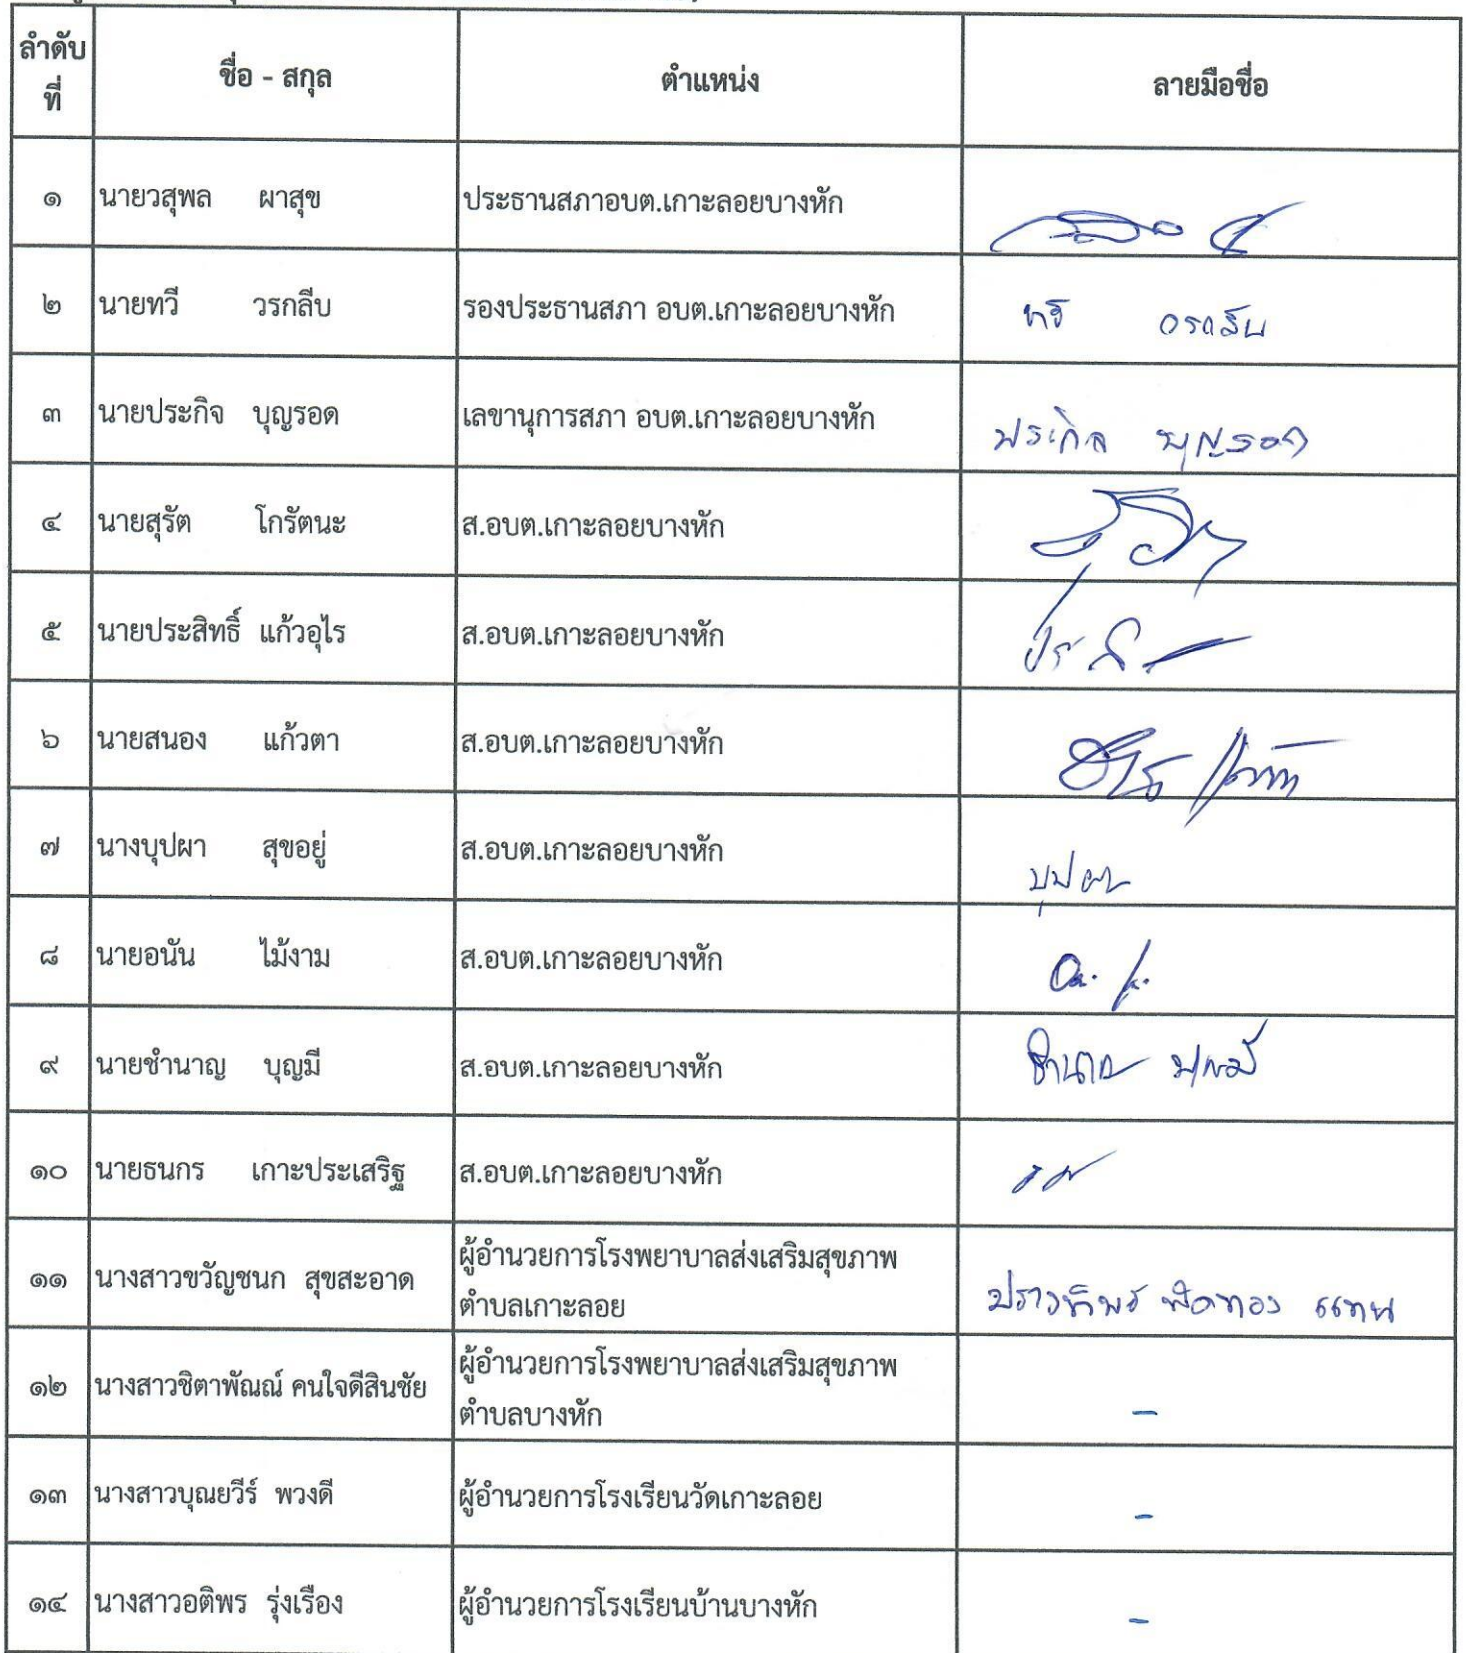 ลำดับ
ที่
ชื่อ - สกุล
ตำแหน่ง
ลายมือชื่อ
๑ นายวสุพล ผาสุข ประธานสภาอบต.เกาะลอยบางหัก
๒ นายทวี วรกลีบ รองประธานสภา อบต.เกาะลอยบางหัก ทวี วรกลีบ
๓ นายประกิจ บุญรอด เลขานุการสภา อบต.เกาะลอยบางหัก ประกิจ บุญรอด
๔ นายสุรัต โกรัตนะ ส.อบต.เกาะลอยบางหัก
๕ นายประสิทธิ์ แก้วอุไร ส.อบต.เกาะลอยบางหัก
๖ นายสนอง แก้วตา ส.อบต.เกาะลอยบางหัก
๗ นางบุปผา สุขอยู่ ส.อบต.เกาะลอยบางหัก บุปผา
๘ นายอนัน ไม้งาม ส.อบต.เกาะลอยบางหัก
๙ นายชำนาญ บุญมี ส.อบต.เกาะลอยบางหัก ชำนาญ บุญมี
๑๐ นายธนกร เกาะประเสริฐ ส.อบต.เกาะลอยบางหัก
๑๑ นางสาวขวัญชนก สุขสะอาด ผู้อำนวยการโรงพยาบาลส่งเสริมสุขภาพ
ตำบลเกาะลอย แทน
๑๒ นางสาวชิตาพัณณ์ คนใจดีสินชัย ผู้อำนวยการโรงพยาบาลส่งเสริมสุขภาพ
ตำบลบางหัก -
๑๓ นางสาวบุณยวีร์ พวงดี ผู้อำนวยการโรงเรียนวัดเกาะลอย -
๑๔ นางสาวอติพร รุ่งเรือง ผู้อำนวยการโรงเรียนบ้านบางหัก -